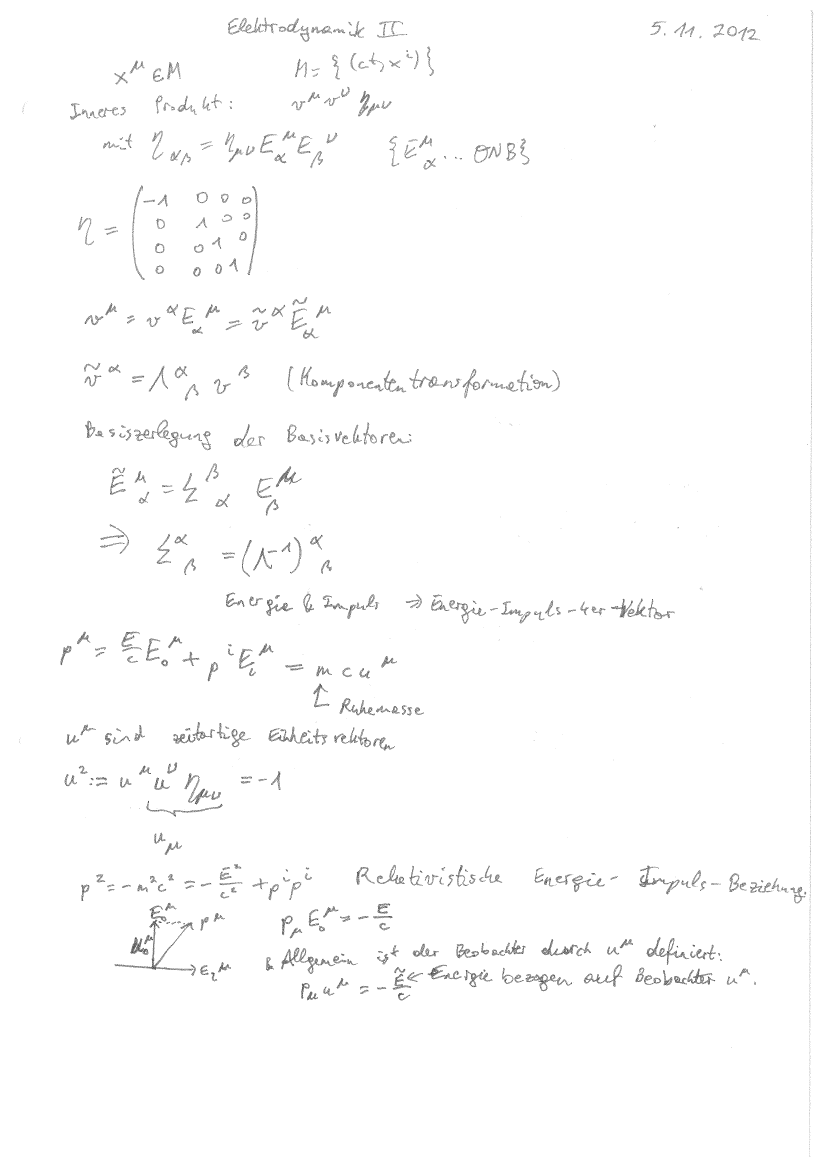 Elektrodynamik II 5.11.2012
x^μ ∈ M M = {(ct, x^i)}
Inneres Produkt: v^μ v^ν η_μν
mit η_αβ = η_μν E_α^μ E_β^ν {E_α^μ ... ONB}
η = ( -1 0 0 0
0 1 0 0
0 0 1 0
0 0 0 1 )
v^μ = v^α E_α^μ = ṽ^α Ẽ_α^μ
ṽ^α = Λ^α_β v^β (Komponententransformation)
Basiszerlegung der Basisvektoren:
Ẽ^μ_α = Σ^β_α E_β^μ
⇒ Σ^α_β = (Λ^-1)^α_β
Energie & Impuls ⇒ Energie-Impuls-4er-Vektor
p^μ = E/c E_0^μ + p^i E_i^μ = m c u^μ
↑ Ruhemasse
u^μ sind zeitartige Einheitsvektoren
u^2 := u^μ u^ν η_μν = -1
u_μ
p^2 = -m^2c^2 = -E^2/c^2 + p^i p^i Relativistische Energie-Impuls-Beziehung.
E_0^μ p^μ p_μ E_0^μ = -E/c
u_0^μ & Allgemein ist der Beobachter durch u^μ definiert:
E_i^μ p_μ u^μ = -Ẽ/c ← Energie bezogen auf Beobachter u^μ.